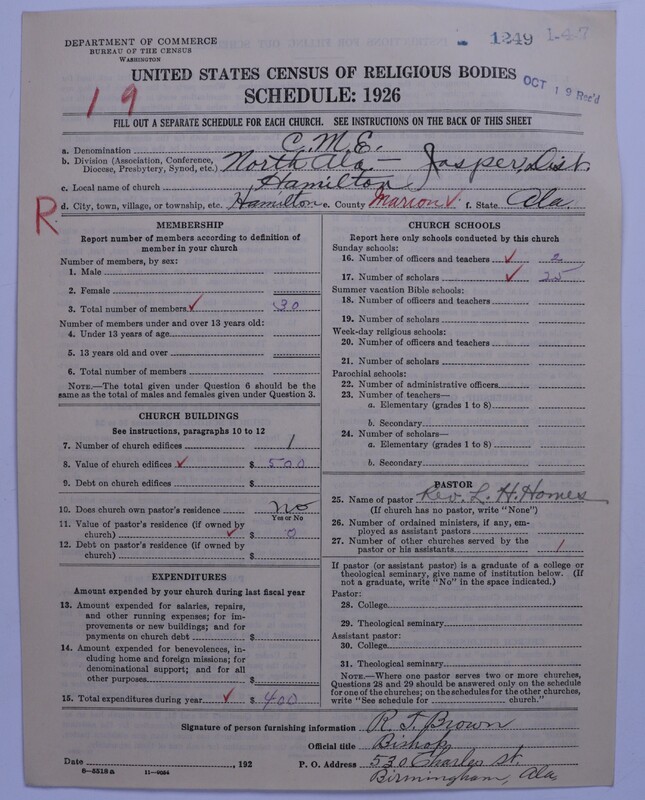 DEPARTMENT OF COMMERCE
BUREAU OF THE CENSUS
WASHINGTON
1249 1-4-7
UNITED STATES CENSUS OF RELIGIOUS BODIES
OCT 19 Rec'd
SCHEDULE: 1926
19
FILL OUT A SEPARATE SCHEDULE FOR EACH CHURCH. SEE INSTRUCTIONS ON THE BACK OF THIS SHEET
a. Denomination C.M.E.
b. Division (Association, Conference, Diocese, Presbytery, Synod, etc.) North Ala.— Jasper, Dist.
c. Local name of church Hamilton
R
d. City, town, village, or township, etc. Hamilton e. County Marion f. State Ala.
MEMBERSHIP
Report number of members according to definition of
member in your church
Number of members, by sex:
1. Male
2. Female
3. Total number of members 30
Number of members under and over 13 years old:
4. Under 13 years of age
5. 13 years old and over
6. Total number of members
NOTE.—The total given under Question 6 should be the
same as the total of males and females given under Question 3.
CHURCH BUILDINGS
See instructions, paragraphs 10 to 12
7. Number of church edifices 1
8. Value of church edifices $ 500
9. Debt on church edifices $
10. Does church own pastor's residence No
Yes or No
11. Value of pastor's residence (if owned by
church) $ 0
12. Debt on pastor's residence (if owned by
church) $
EXPENDITURES
Amount expended by your church during last fiscal year
13. Amount expended for salaries, repairs,
and other running expenses; for im-
provements or new buildings; and for
payments on church debt $
14. Amount expended for benevolences, in-
cluding home and foreign missions; for
denominational support; and for all
other purposes $
15. Total expenditures during year $ 400
CHURCH SCHOOLS
Report here only schools conducted by this church
Sunday schools:
16. Number of officers and teachers 2
17. Number of scholars 25
Summer vacation Bible schools:
18. Number of officers and teachers
19. Number of scholars
Week-day religious schools:
20. Number of officers and teachers
21. Number of scholars
Parochial schools:
22. Number of administrative officers
23. Number of teachers—
a. Elementary (grades 1 to 8)
b. Secondary
24. Number of scholars—
a. Elementary (grades 1 to 8)
b. Secondary
PASTOR
25. Name of pastor Rev. L. H. Homes
(If church has no pastor, write "None")
26. Number of ordained ministers, if any, em-
ployed as assistant pastors
27. Number of other churches served by the
pastor or his assistants 1
If pastor (or assistant pastor) is a graduate of a college or
theological seminary, give name of institution below. (If
not a graduate, write "No" in the space indicated.)
Pastor:
28. College
29. Theological seminary
Assistant pastor:
30. College
31. Theological seminary
NOTE.—Where one pastor serves two or more churches,
Questions 28 and 29 should be answered only on the schedule
for one of the churches; on the schedules for the other churches,
write "See schedule for church."
Signature of person furnishing information R. T. Brown
Official title Bishop
Date , 192 P. O. Address 530 Charles st.
8—5518a 11—9054 Birmingham, Ala.